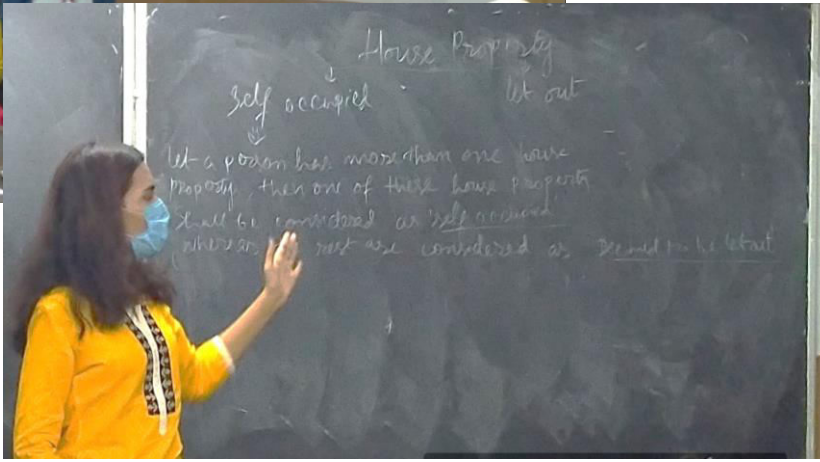 House Property
Self occupied let out
let a person has more than one house
property, then one of these house property
shall be considered as self occupied
whereas rest are considered as Deemed to be let out